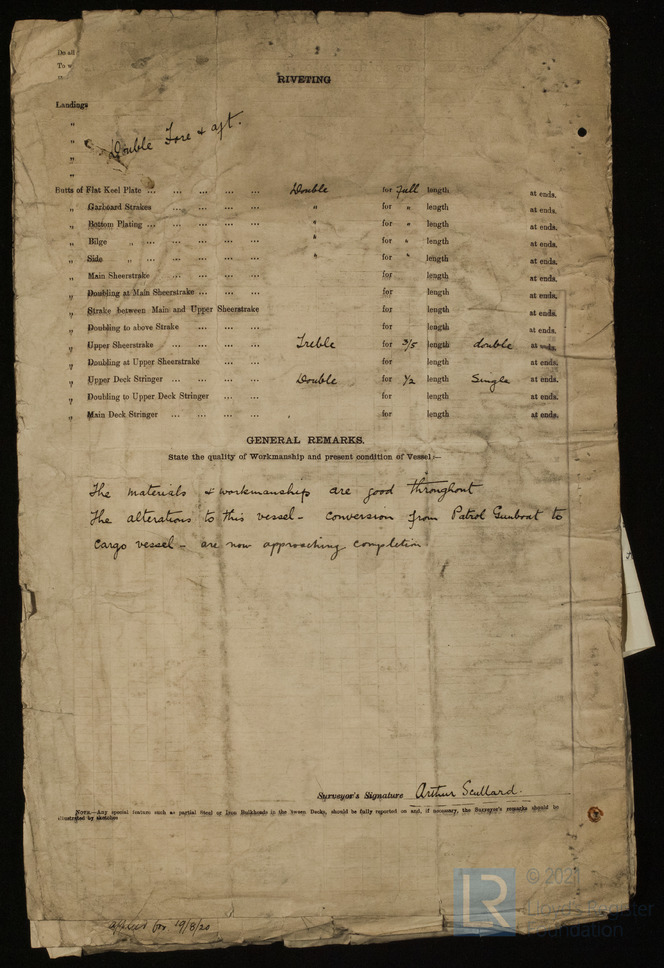 Do all
To w
RIVETING
Landings
„
„ Double Fore & aft.
„
„
Butts of Flat Keel Plate ... ... ... ... ... Double for full length at ends.
„ Garboard Strakes ... ... ... ... „ for „ length at ends.
„ Bottom Plating ... ... ... ... ... „ for „ length at ends.
„ Bilge „ ... ... ... ... ... „ for „ length at ends.
„ Side „ ... ... ... ... ... „ for „ length at ends.
„ Main Sheerstrake ... ... ... ... for length at ends.
„ Doubling at Main Sheerstrake ... ... ... for length at ends.
„ Strake between Main and Upper Sheerstrake for length at ends.
„ Doubling to above Strake ... ... ... for length at ends.
„ Upper Sheerstrake ... ... ... ... Treble for 3/5 length double at ends.
„ Doubling at Upper Sheerstrake ... ... ... for length at ends.
„ Upper Deck Stringer ... ... ... ... Double for 1/2 length Single at ends.
„ Doubling to Upper Deck Stringer ... ... for length at ends.
„ Main Deck Stringer ... ... ... ... for length at ends.
GENERAL REMARKS.
State the quality of Workmanship and present condition of Vessel:—
The materials & workmanship are good throughout
The alterations to this vessel - conversion from Patrol Gunboat to
Cargo vessel - are now approaching completion
Surveyor's Signature Arthur Scullard.
NOTE.—Any special feature such as partial Steel or Iron Bulkheads in the 'tween Decks, should be fully reported on and, if necessary, the Surveyor's remarks should be
illustrated by sketches
applied for 19/8/20
© 202
Lloyd's Register
Foundation
LR